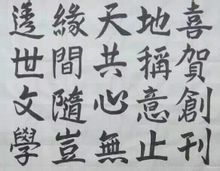 喜賀創刊
地稱意止
天共心無
緣間隨豈
透世文學